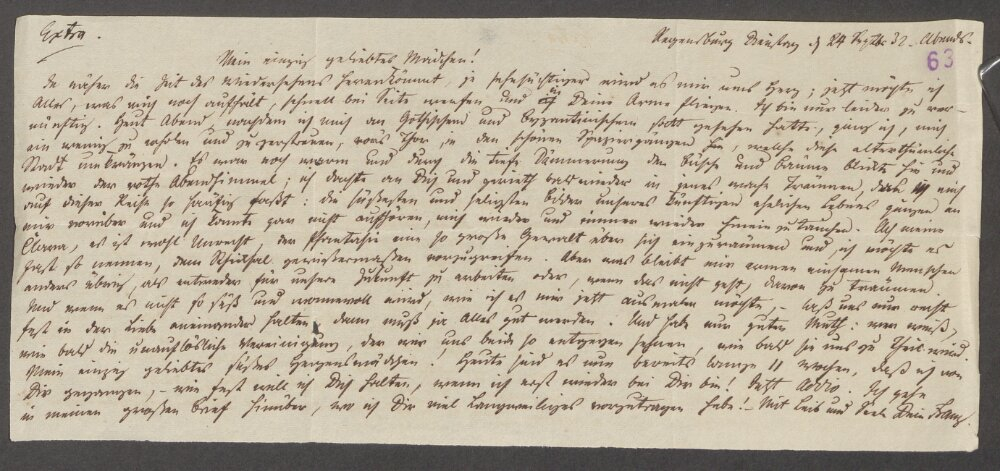 Extra.
Regensburg Dienstag d 24 Septbr 32. Abends.
63
Mein einzig geliebtes Mädchen!
Je näher die Zeit des Wiedersehens herankömmt, je sehnsüchtiger wird es mir ums Herz; jetzt möchte ich
Alles, was mich noch aufhält, schnell bei Seite werfen und in Deine Arme fliegen. Ich bin nur leider zu ver-
nünftig. Heut Abend, nachdem ich mich am Gothischen und Byzantinischen satt gesehen hatte, ging ich, mich
ein wenig zu erholen und zu zerstreuen, vors Thor in den schönen Spaziergängen hin, welche diese alterthümliche
Stadt umkränzen. Es war noch warm und durch die tiefe Dämmerung der Büsche und Bäume blickte hin und
wieder der rothe Abendhimmel; ich dachte an Dich und gerieth bald wieder in jenes wache Träumen, das mich
auf dieser Reise so häufig faßt: die süßesten und seligsten Bilder unseres künftigen ehelichen Lebens gingen an
mir vorüber und ich konnte gar nicht aufhören, mich wieder und immer wieder hinein zu tauchen. Ach meine
Clara, es ist wohl Unrecht, der Phantasie eine so große Gewalt über sich einzuräumen und ich möchte es
fast so nennen, dem Schicksal gewissermaßen vorzugreifen. Aber was bleibt mir armen einsamen Menschen
anders übrig, als entweder für unsere Zukunft zu arbeiten oder, wenn das nicht geht, davon zu träumen.
Und wenn es nicht so süß und wonnevoll wird, wie ich es mir jetzt ausmalen möchte, laß uns nur recht
fest in der Liebe aneinander halten, dann muß ja Alles gut werden. Und habe nur guten Muth: wer weiß,
wie bald die unauflösliche Vereinigung, der wir uns beide so entgegen sehnen, wie bald sie uns zu Theil wird.
Mein einzig geliebtes süßes Herzensmädchen. Heute sind es nun bereits lange 11 Wochen, daß ich von
Dir gegangen, – wie fest will ich Dich halten, wenn ich erst wieder bei Dir bin! Jetzt Addio. Ich gehe
in meinen großen Brief hinüber, wo ich Dir viel Langweiliges vorzutragen habe! – Mit Leib und Seele Dein Franz.